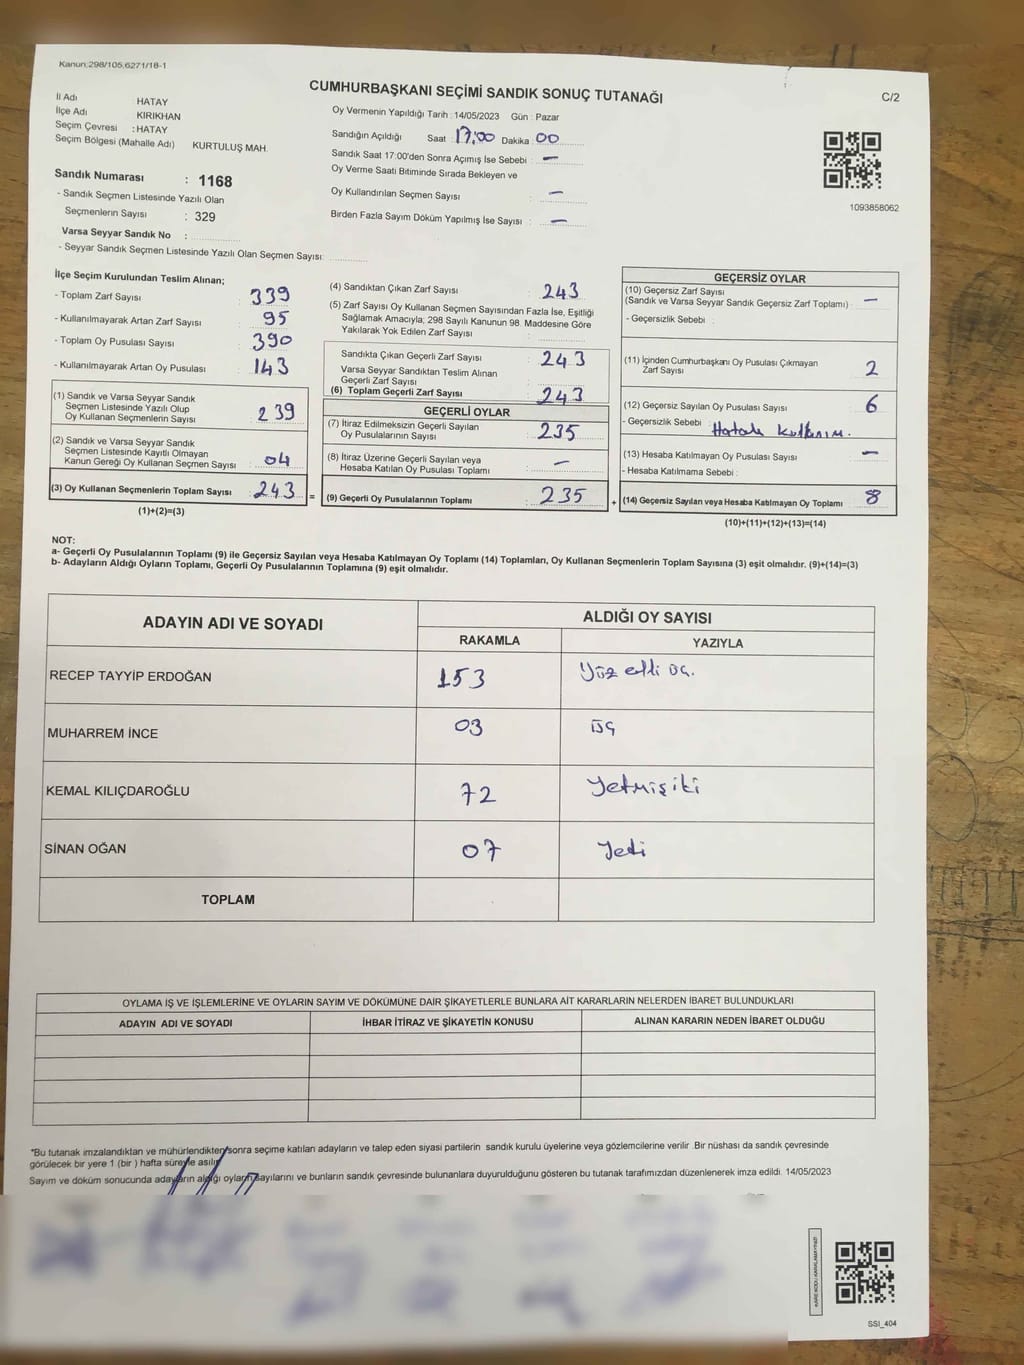 Kanun:298/105,6271/18-1
CUMHURBAŞKANI SEÇİMİ SANDIK SONUÇ TUTANAĞI
C/2
İl Adı : HATAY
İlçe Adı : KIRIKHAN
Seçim Çevresi : HATAY
Seçim Bölgesi (Mahalle Adı) KURTULUŞ MAH.
Oy Vermenin Yapıldığı Tarih : 14/05/2023 Gün : Pazar
Sandığın Açıldığı Saat : 17,00 Dakika : 00
Sandık Saat 17:00'den Sonra Açımış İse Sebebi : —
Oy Verme Saati Bitiminde Sırada Bekleyen ve
Oy Kullandırılan Seçmen Sayısı : —
Birden Fazla Sayım Döküm Yapılmış İse Sayısı : —
1093858062
Sandık Numarası : 1168
- Sandık Seçmen Listesinde Yazılı Olan
Seçmenlerin Sayısı : 329
Varsa Seyyar Sandık No :
- Seyyar Sandık Seçmen Listesinde Yazılı Olan Seçmen Sayısı:
İlçe Seçim Kurulundan Teslim Alınan;
- Toplam Zarf Sayısı : 339
- Kullanılmayarak Artan Zarf Sayısı : 95
- Toplam Oy Pusulası Sayısı : 390
- Kullanılmayarak Artan Oy Pusulası : 143
(1) Sandık ve Varsa Seyyar Sandık
Seçmen Listesinde Yazılı Olup
Oy Kullanan Seçmenlerin Sayısı : 239
(2) Sandık ve Varsa Seyyar Sandık
Seçmen Listesinde Kayıtlı Olmayan
Kanun Gereği Oy Kullanan Seçmen Sayısı : 04
(3) Oy Kullanan Seçmenlerin Toplam Sayısı : 243
(1)+(2)=(3)
=
(4) Sandıktan Çıkan Zarf Sayısı : 243
(5) Zarf Sayısı Oy Kullanan Seçmen Sayısından Fazla İse, Eşitliği
Sağlamak Amacıyla; 298 Sayılı Kanunun 98. Maddesine Göre
Yakılarak Yok Edilen Zarf Sayısı :
Sandıkta Çıkan Geçerli Zarf Sayısı : 243
Varsa Seyyar Sandıktan Teslim Alınan
Geçerli Zarf Sayısı :
(6) Toplam Geçerli Zarf Sayısı : 243
GEÇERLİ OYLAR
(7) İtiraz Edilmeksizin Geçerli Sayılan
Oy Pusulalarının Sayısı : 235
(8) İtiraz Üzerine Geçerli Sayılan veya
Hesaba Katılan Oy Pusulası Toplamı : —
(9) Geçerli Oy Pusulalarının Toplamı : 235
+
GEÇERSİZ OYLAR
(10) Geçersiz Zarf Sayısı
(Sandık ve Varsa Seyyar Sandık Geçersiz Zarf Toplamı) : —
- Geçersizlik Sebebi :
(11) İçinden Cumhurbaşkanı Oy Pusulası Çıkmayan
Zarf Sayısı : 2
(12) Geçersiz Sayılan Oy Pusulası Sayısı : 6
- Geçersizlik Sebebi : Hatalı kullanım.
(13) Hesaba Katılmayan Oy Pusulası Sayısı : —
- Hesaba Katılmama Sebebi :
(14) Geçersiz Sayılan veya Hesaba Katılmayan Oy Toplamı : 8
(10)+(11)+(12)+(13)=(14)
NOT:
a- Geçerli Oy Pusulalarının Toplamı (9) ile Geçersiz Sayılan veya Hesaba Katılmayan Oy Toplamı (14) Toplamları, Oy Kullanan Seçmenlerin Toplam Sayısına (3) eşit olmalıdır. (9)+(14)=(3)
b- Adayların Aldığı Oyların Toplamı, Geçerli Oy Pusulalarının Toplamına (9) eşit olmalıdır.
ADAYIN ADI VE SOYADI
ALDIĞI OY SAYISI
RAKAMLA YAZIYLA
RECEP TAYYİP ERDOĞAN 153 Yüz elli üç.
MUHARREM İNCE 03 üç
KEMAL KILIÇDAROĞLU 72 Yetmişiki
SİNAN OĞAN 07 Yedi
TOPLAM
OYLAMA İŞ VE İŞLEMLERİNE VE OYLARIN SAYIM VE DÖKÜMÜNE DAİR ŞİKAYETLERLE BUNLARA AİT KARARLARIN NELERDEN İBARET BULUNDUKLARI
ADAYIN ADI VE SOYADI İHBAR İTİRAZ VE ŞİKAYETİN KONUSU ALINAN KARARIN NEDEN İBARET OLDUĞU
*Bu tutanak imzalandıktan ve mühürlendikten sonra seçime katılan adayların ve talep eden siyasi partilerin sandık kurulu üyelerine veya gözlemcilerine verilir. Bir nüshası da sandık çevresinde
görülecek bir yere 1 (bir ) hafta süreyle asılır.
Sayım ve döküm sonucunda adayların aldığı oyların sayılarını ve bunların sandık çevresinde bulunanlara duyurulduğunu gösteren bu tutanak tarafımızdan düzenlenerek imza edildi. 14/05/2023
KARE KODU KARALAMAYINIZ!
SSI_404